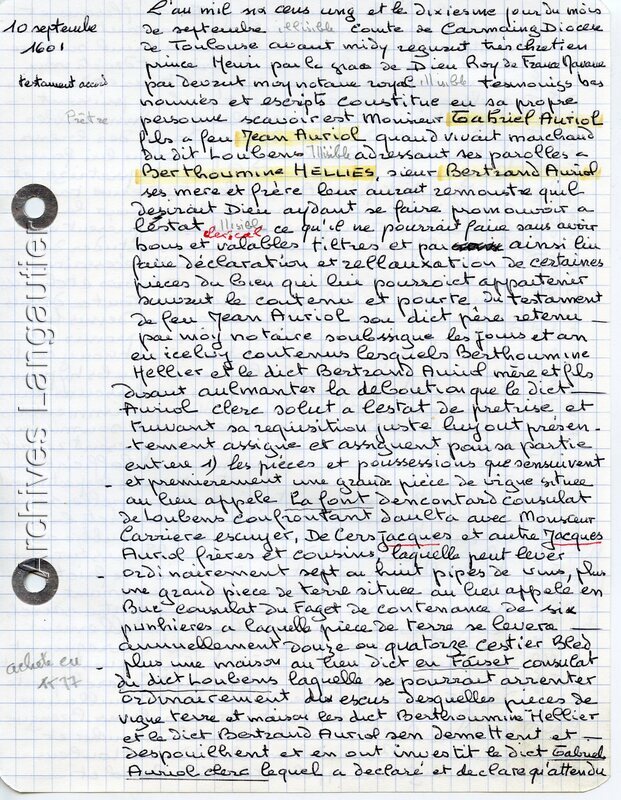 L'au mil six cens ung et le dixiesme jour du mois
10 septembre
1601
de septembre illisible comte de Carmaing Diocese
de Toulouse avant midy regnant tres chretien
prince Henri par le grace de Dieu Roy de France Navarre
testament accord
par devant moy notaire royal illisible tesmoings bas
nommés et escripts constitue en sa propre
Prêtre
personne scavoir est Monsieur Gabriel Auriol
fils a feu Jean Auriol quand vivait marchand
du dit Loubens Illisible adressant ses parolles a
Berthoumine HELLIES, sieur Bertrand Auriol
ses mere et frère leur aurait remonstre qu'il
desirait Dieu aydant se faire promouvoir a
l'estat illisible ce qu'il ne pourrait faire sans avoir
clerical
bons et valables tiltres et par ainsi lui
faire déclaration et rellaxation de certaines
pieces du bien qui lui pourroict appartenir
suivant le contenu et porte du testament
de feu Jean Auriol son dict père retenu
par moy notaire soubssigne les jours et an
en iceluy contenus lesquels Berthoumine
Hellier et le dict Bertrand Auriol mère et fils
disant aulmanter la deboution que le dict
Auriol clerc solut a lestat de pretrise et
truvant sa requisition juste luy ont présen-
tement assigne et assignent pour sa partie
entiere 1) les pièces et poussessions que sensuivent
et premierement une grande pièce de vigne située
au lieu appele La font dencontard consulat
de Loubens confrontant daulta avec Monsieur
Carriere escuyer, De Cers Jacques et autre Jacques
Auriol frères et cousins laquelle peut lever
ordinairement sept au huit pipes de vins, plus
une grand piece de terre située au lieu appelé en
Buc consulat du Faget de contenance de six
punhieres a laquelle pièce de terre se levera
annuellement douze ou quatorze cestier Bled
achete en
1577
plus une maison au lieu dict en Fouset consulat
du dict Loubens laquelle se pourrait arrenter
ordinairement dix escus desquelles pièces de
vigne terre et maison les dict Berthoumine Hellier
et le dict Bertrand Auriol sen demettent et
despouilhent et en ont investit le dict Gabriel
Auriol clerc lequel a declaré et declare qu'attendu
Archives Langautier